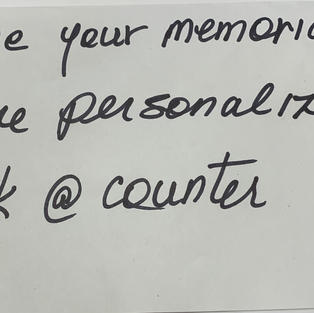 e your memori
e personaliz
k @ counter